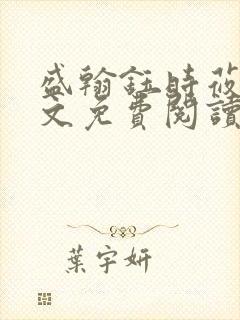 盛翰鈺時莜
文免費閱讀
葉宇妍